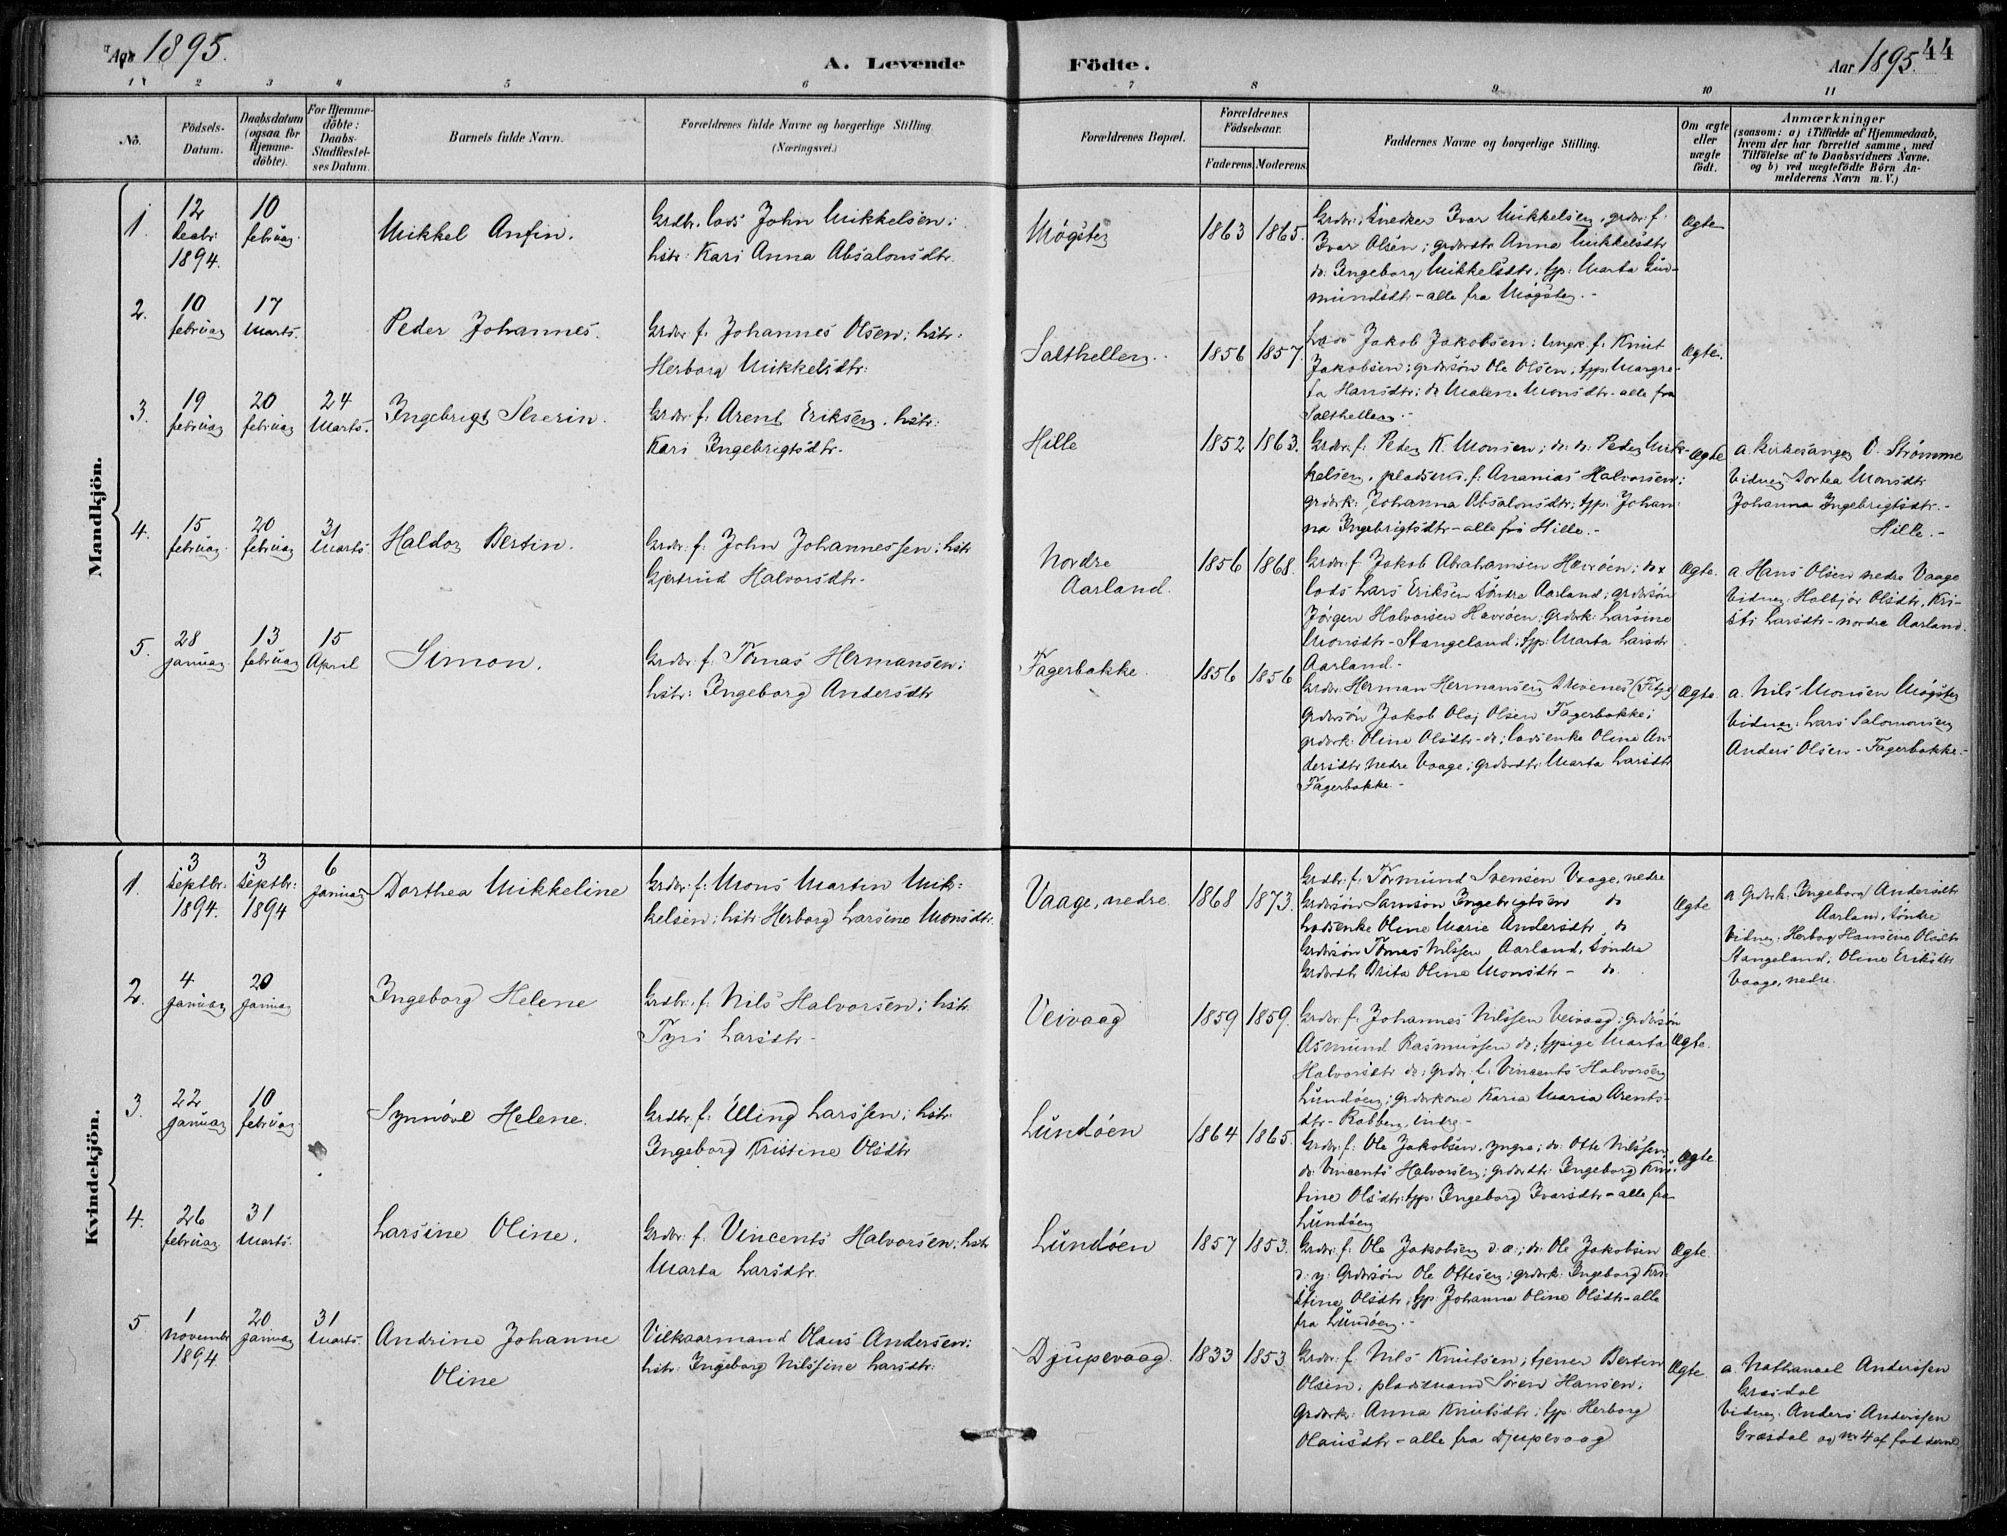 Aar 1895.
A. Levende
Födte.
Aar 1895.
44
1 2 3 4 5 6 7 8 9 10 11
No.
Födsels-
Datum.
Daabsdatum
(ogsaa for
Hjemme-
döbte).
For Hjemme-
döbte:
Daabs-
Stadfæstel-
ses Datum.
Barnets fulde Navn.
Forældrenes fulde Navne og borgerlige Stilling
(Næringsvei.)
Forældrenes Bopæl.
Forældrenes
Födselsaar.
Faderens. Moderens.
Faddernes Navne og borgerlige Stilling.
Om ægte
eller
uægte
født.
Anmærkninger
(saasom: a) i Tilfælde af Hjemmedaab,
hvem der har forrettet samme, med
Tilföielse af to Daabsvidners Navne.
og b) ved uægtefödte Börn An-
melderens Navn m. V.)
Mandkjön.
1.
12
decbr.
1894.
10
februar
Mikkel Anfin.
Grdbr. lods John Mikkelsen;
hstr: Kari Anna Absalonsdtr.
Møgster
1863
1865.
Grdbr. Snedker Ivar Mikkelsen, grdbr: f.
Ivar Olsen; grdbrdtr Anna Mikkelsdtr
do: Ingeborg Mikkelsdtr; tjp: Marta Gud-
mundsdtr - alle fra Møgster. -
Ægte
2.
10
februar
17
Marts.
Peder Johannes.
Grdbr. f. Johannes Olsen; hstr:
Herborg Mikkelsdtr:
Salthellen.
1856
1857.
Lods Jakob Jakobsen; ungk. f. Knut
Jakobsen; grdbrsøn Ole Olsen; tjp: Margre-
ta Hansdtr; do Malena Monsdtr - alle fra
Salthellen. -
Ægte.
3.
19
februar
20
februar
24
Marts.
Ingebrigt Severin.
Grdbr. f. Arent Eriksen. hstr:
Kari Ingebrigtsdtr.
Hille
1852
1863.
Grdbr. f. Peder K. Monsen; do. do. Peder Mik-
kelsen, pladsmd. f. Ananias Halvorsen;
grdbrk: Johanna Absalonsdtr; tjp: Johan-
na Ingebrigtsdtr - alle fra Hille. -
Ægte
a. Kirkesanger O. Strømme
Vidner Dortea Monsdtr
Johanna Ingebrigtsdtr. -
Hille. -
4.
15
februar.
20
februar
31
Marts
Haldor Bertin.
Grdbr. f. John Johannessen; hstr
Gjertrud Halvorsdtr.
Nordre
Aarland.
1856
1868.
Grdbr. f Jakob Abrahamsen Hevrøen; do &
lods Lars Eriksen Søndre Aarland; grdbrsøn
Jørgen Halvorsen Hevrøen; grdbrk: Larsine
Monsdtr - Stangeland; tjp: Marta Larsdtr
Aarland. -
Ægte.
a. Hans Olsen nedre Vaage
Vidner: Halbjør Olsdtr, Kri-
sti Larsdtr - nordre Aarland.
5.
28
januar.
13
februar
15
April
Simon.
Grdbr. f. Tomas Hermansen;
hstr: Ingeborg Andersdtr
Fagerbakke.
1856
1856
Grdbr. Herman Hermansen (Fitje)
grdbrsøn Jakob Olaj Olsen Fagerbakke;
grdbrk: Oline Olsdtr - do; lodsenke Oline An-
dersdtr nedre Vaage; grdbrdtr Marta Larsdtr
Fagerbakke. -
Ægte.
a. Nils Monsen Møgster
Vidner: Lars Salomonsen
Anders Olsen - Fagerbakke. -
Kvindekjön.
1.
3
Septbr.
1894.
3
Septbr:
1894
6
januar
Dorthea Mikkeline
Grdbr. f: Mons Martin Mik:
kelsen; hstr: Herborg Larsine Monsdtr.
Vaage, nedre.
1868
1873.
Grdbr. f. Tormund Svensen Vaage, nedre
Grdbrsøn Samson Ingebrigtsen do
Lodsenke Oline Marie Andersdtr do
Grdbrsøn Tomas Nilssen Aarland, Søndre
Grdbrdtr Brita Oline Monsdtr - do.
Ægte
a. Grdbrk: Ingeborg Andersdtr
Aarland, Søndre
Vidner: Herborg Hansine Olsdtr
Stangeland; Oline Eriksdtr
Vaage, nedre.
2.
4
januar
20
januar
Ingeborg Helene
Grdbr. f. Nils Halvorsen; hstr.
Tyri Larsdtr -
Veivaag
1859
1859.
Grdbr. f. Johannes Nilssen Veivaag; grdbrsøn
Asmund Rasmussen do; tjpige Marta
Halvorsdtr do; grdbr. f. Vincents Halvorsen
Lundøen; grdbrkone Karia Maria Arents-
dtr - Rabben, indre -
Ægte.
3.
22
januar
10
februar
Synnøve Helene.
Grdbr. f: Elling Larssen; hstr
Ingeborg Kristine Olsdtr
Lundøen
1864
1865.
Grdbr. f: Ole Jakobsen, yngre; do: Otte Nilssen
do: Vincents Halvorsen; grdbrdtr: Ingeborg Kris-
tine Olsdtr: tjp: Ingeborg Ivarsdtr - alle fra
Lundøen
Ægte
4.
26
februar
31
Marts.
Larsine Oline.
Grdbr. f. Vincents Halvorsen; hstr
Marta Larsdtr.
Lundøen
1857
1853.
Grdbr. f: Ole Jakobsen d. æ.; do: Ole Jakobsen
d: y: Grdbrsøn Ole Ottesen; grdbrk: Ingeborg Kri-
stine Olsdtr; tjp: Johanna Oline Olsdtr - alle
fra Lundøen. -
Ægte
5.
1
novembr
1894
20
januar
31
Marts.
Andrine Johanne
Oline
Vilkaarmand Olaus Andersen;
hstr: Ingeborg Nilssine Larsdtr:
Djupevaag.
1833
1853
Grdbr. f. Nils Knutsen; tjener Bertin
Olsen; pladsmand Søren Hansen.
Grdbrk: Anna Knutsdtr; tjp: Herborg
Olausdtr - alle fra Djupevaag
Ægte.
a. Nathanael Anderssen
Græsdal
Vidner: Anders Anderssen
Græsdal og no 4 af fadderne